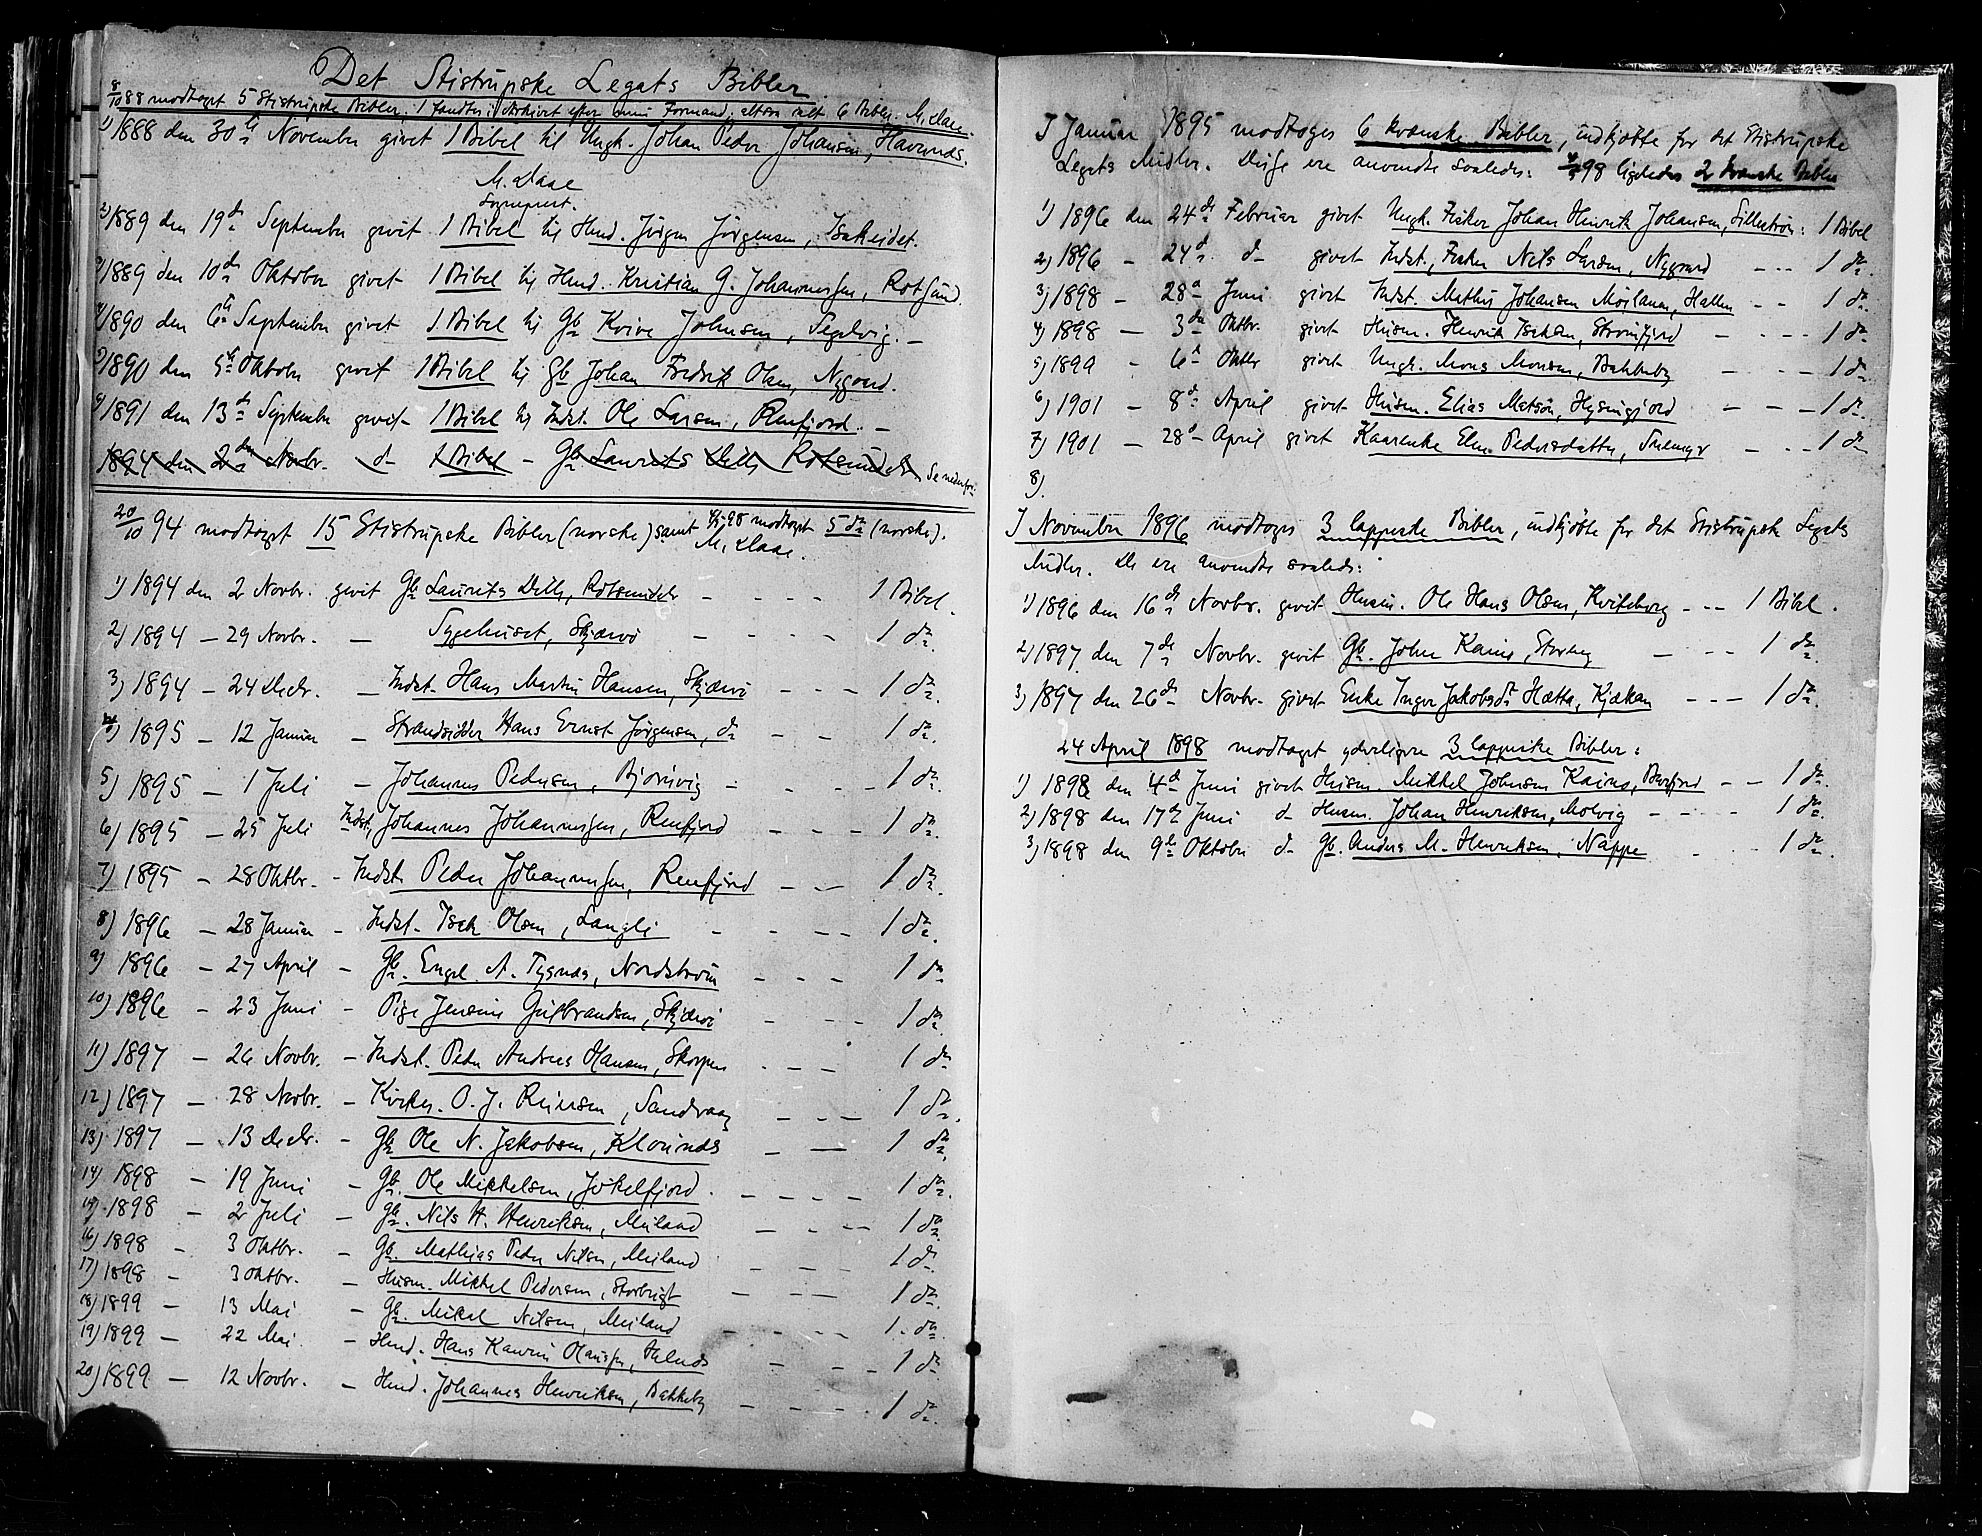 Det Stistrupske Legats Bibler
8/10 88 modtaget 5 Stistrupske Bibler, 1 fandtes i Arkivet efter min Formand, altsaa ialt 6 Bibler. M. Daae.
1) 1888 den 30te November givet 1 Bibel til Ungk. Johan Peder Johansen, Havnnæs.
M. Daae
Sogneprest.
2) 1889 den 19de September givet 1 Bibel til Husm. Jørgen Jørgensen, Isakeidet.
3) 1889 den 10de Oktober givet 1 Bibel til Husm. Kristian G. Johannessen, Rotsund.
4) 1890 den 6te September givet 1 Bibel til Gb. Kvive Johnsen, Segelvig. –
5) 1890 den 5te Oktober givet 1 Bibel til Gb. Johan Fredrik Olsen, Nygaard.
6) 1891 den 13de September givet 1 Bibel til Indst. Ole Larsen, Reinfjord. –
1894 den 2den Novbr. d 1 Bibel – Gb. Laurits Delle Rotsundelv Se nedenfor.
20/10 94 modtaget 15 Stistrupske Bibler (norske) samt 98 modtaget 5 do (norske).
M. Daae.
1) 1894 den 2 Novbr. givet Gb. Laurits Delle, Rotsundelv – – – – 1 Bibel.
2) 1894 – 29 Novbr. – Sygehuset, Skjærvø – – – – 1 do.
3) 1894 – 24 Decbr. – Indst. Hans Martin Hansen, Skjærvø – – – 1 do.
4) 1895 – 12 Januar – Strandsidder Hans Ernst Jørgensen, do – – 1 do.
5) 1895 – 1 Juli – Johannes Pedersen, Bjørnvig – – – 1 do.
6) 1895 – 25 Juli Indst. Johannes Johannessen, Reinfjord – – – 1 do.
7) 1895 – 28 Oktbr. – Indst. Peder Johannessen, Reinfjord – – 1 do.
8) 1896 – 28 Januar – Indst. Isak Olsen, Langli – – – – 1 do.
9) 1896 – 27 April – Gb. Engel A. Tygnæs, Nordstrøm – – – 1 do
10) 1896 – 23 Juni – Pige Jensine Gulbrandsen, Skjærvø – – – 1 do.
11) 1897 – 26 Novbr. – Indst. Peder Andreas Hansen, Skorpen – – – 1 do
12) 1897 – 28 Novbr. – Kirkes. O. J. Reiersen, Sandvaag – – – 1 do.
13) 1897 – 13 Decbr. – Gb. Ole N. Jakobsen, Klounæs – – 1 do.
14) 1898 – 19 Juni – Gb. Ole Mikkelsen, Jökelfjord. – – – – 1 do.
15) 1898 – 2 Juli – Gb. Nils H. Henriksen, Meiland – – – – 1 do.
16) 1898 – 3 Oktbr. – Gb. Mathias Peder Nilsen, Meiland – – – 1 do.
17) 1898 – 3 Oktbr. – Husm. Mikkel Pedersen, Storbugt – – – 1 do.
18) 1899 – 13 Mai – Gb. Mikal Nilsen, Meiland – – – – 1 do.
19) 1899 – 22 Mai – Husm. Hans Kaurin Olaussen, – – – 1 do
20) 1899 – 12 Novbr. – Husm. Johannes Henriksen, Bakkeby – – – – 1 do.
I Januar 1895 modtoges 6 kvænske Bibler, indkjøbte for det Stistrupske
Legats Midler. Disse ere anvendte saaledes: 98 ligeledes 2 kvænske Bibler
1) 1896 den 24de Februar givet Ungk. Fisker Johan Henrik Johansen, : 1 Bibel
2) 1896 – 24d. d – givet Indst., Fisker Nils Larsen, Nygaard – – – 1 do.
3) 1898 – 28d Juni givet Indst. Mathis Johansen Moilanen, Hallen – – 1 do.
4) 1898 – 3de Oktbr. givet Husm. Henrik Isaksen, Straumfjord – – – – 1 do
5) 1899 – 6te Oktbr givet Ungk. Mons Monsen, Bakkeby – – – – 1 do
6) 1901 – 8de April givet Husm. Elias Matson, Hysingjord – – – 1 do.
7) 1901 – 28d April givet Kaarenke Elen Pedersdatter, Snemyr – – – 1 do
8).
I November 1896 modtoges 3 lappiske Bibler, indkjøbte for det Stistrupske Legats
Midler. De ere anvendte saaleds:
1) 1896 den 16de Novbr. givet Husm. Ole Hans Olsen, Kviteberg – – – 1 Bibel.
2) 1897 den 7de Novbr. givet Gb. John Kainus, Storeng – – – – 1 do.
3) 1897 den 26de Novbr. givet Enke Inger Jakobsdt Hætta, Kjækan – – – 1 do.
24 April 1898 modtaget yderligere 3 lappiske Bibler:
1) 1898 den 4de Juni givet Husm. Mikkel Johnsen Kainus, Burfjord – – 1 do.
2) 1898 den 17de Juni d Husm. Johan Henriksen, Molvig – – – – 1 do.
3) 1898 den 9de Oktober d– Gb. Anders M. Henriksen, Nappe – – – 1 do.